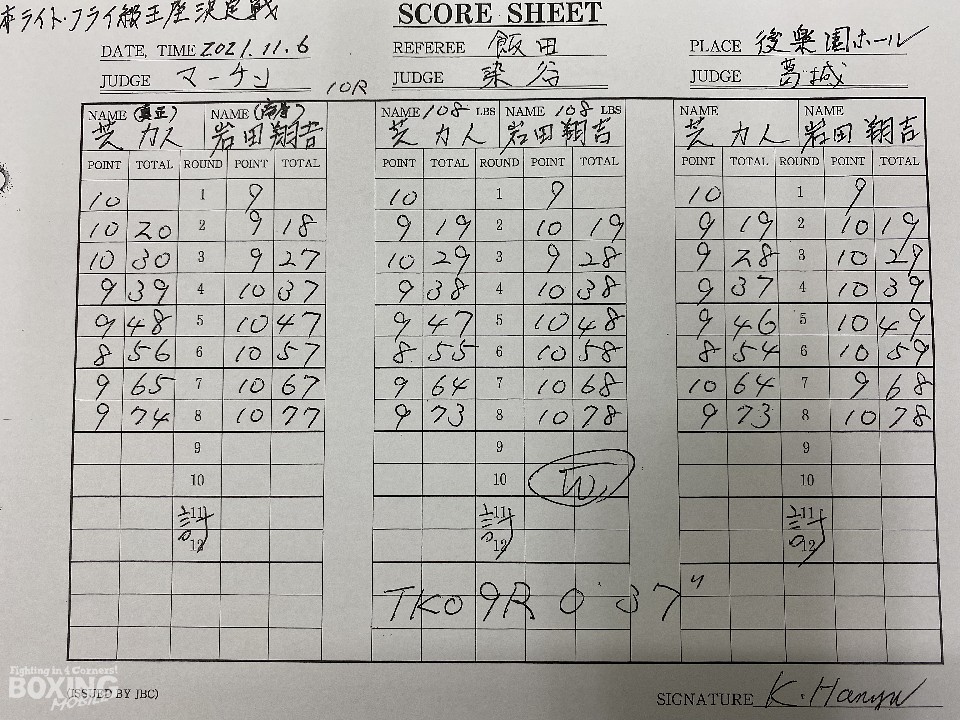 本ライト・フライ級王座決定戦
SCORE SHEET
DATE, TIME 2021.11.6 REFEREE 飯田 PLACE 後楽園ホール
JUDGE マーチン JUDGE 染谷 JUDGE 葛城
10R
NAME (真正) NAME NAME 108 LBS NAME 108 LBS NAME NAME
芝 力人 岩田翔吉 芝 力人 岩田翔吉 芝 力人 岩田翔吉
POINT TOTAL ROUND POINT TOTAL POINT TOTAL ROUND POINT TOTAL POINT TOTAL ROUND POINT TOTAL
10 1 9 10 1 9 10 1 9
10 20 2 9 18 9 19 2 10 19 9 19 2 10 19
10 30 3 9 27 10 29 3 9 28 9 28 3 10 29
9 39 4 10 37 9 38 4 10 38 9 37 4 10 39
9 48 5 10 47 9 47 5 10 48 9 46 5 10 49
8 56 6 10 57 8 55 6 10 58 8 54 6 10 59
9 65 7 10 67 9 64 7 10 68 10 64 7 9 68
9 74 8 10 77 9 73 8 10 78 9 73 8 10 78
9 9 9
10 10 W 10
計 11 計 11 計 11
12 12 12
TKO 9R 0'37"
Fighting in 4 Corners!
BOXING
MOBILE
(ISSUED BY JBC)
SIGNATURE K. Hanyu